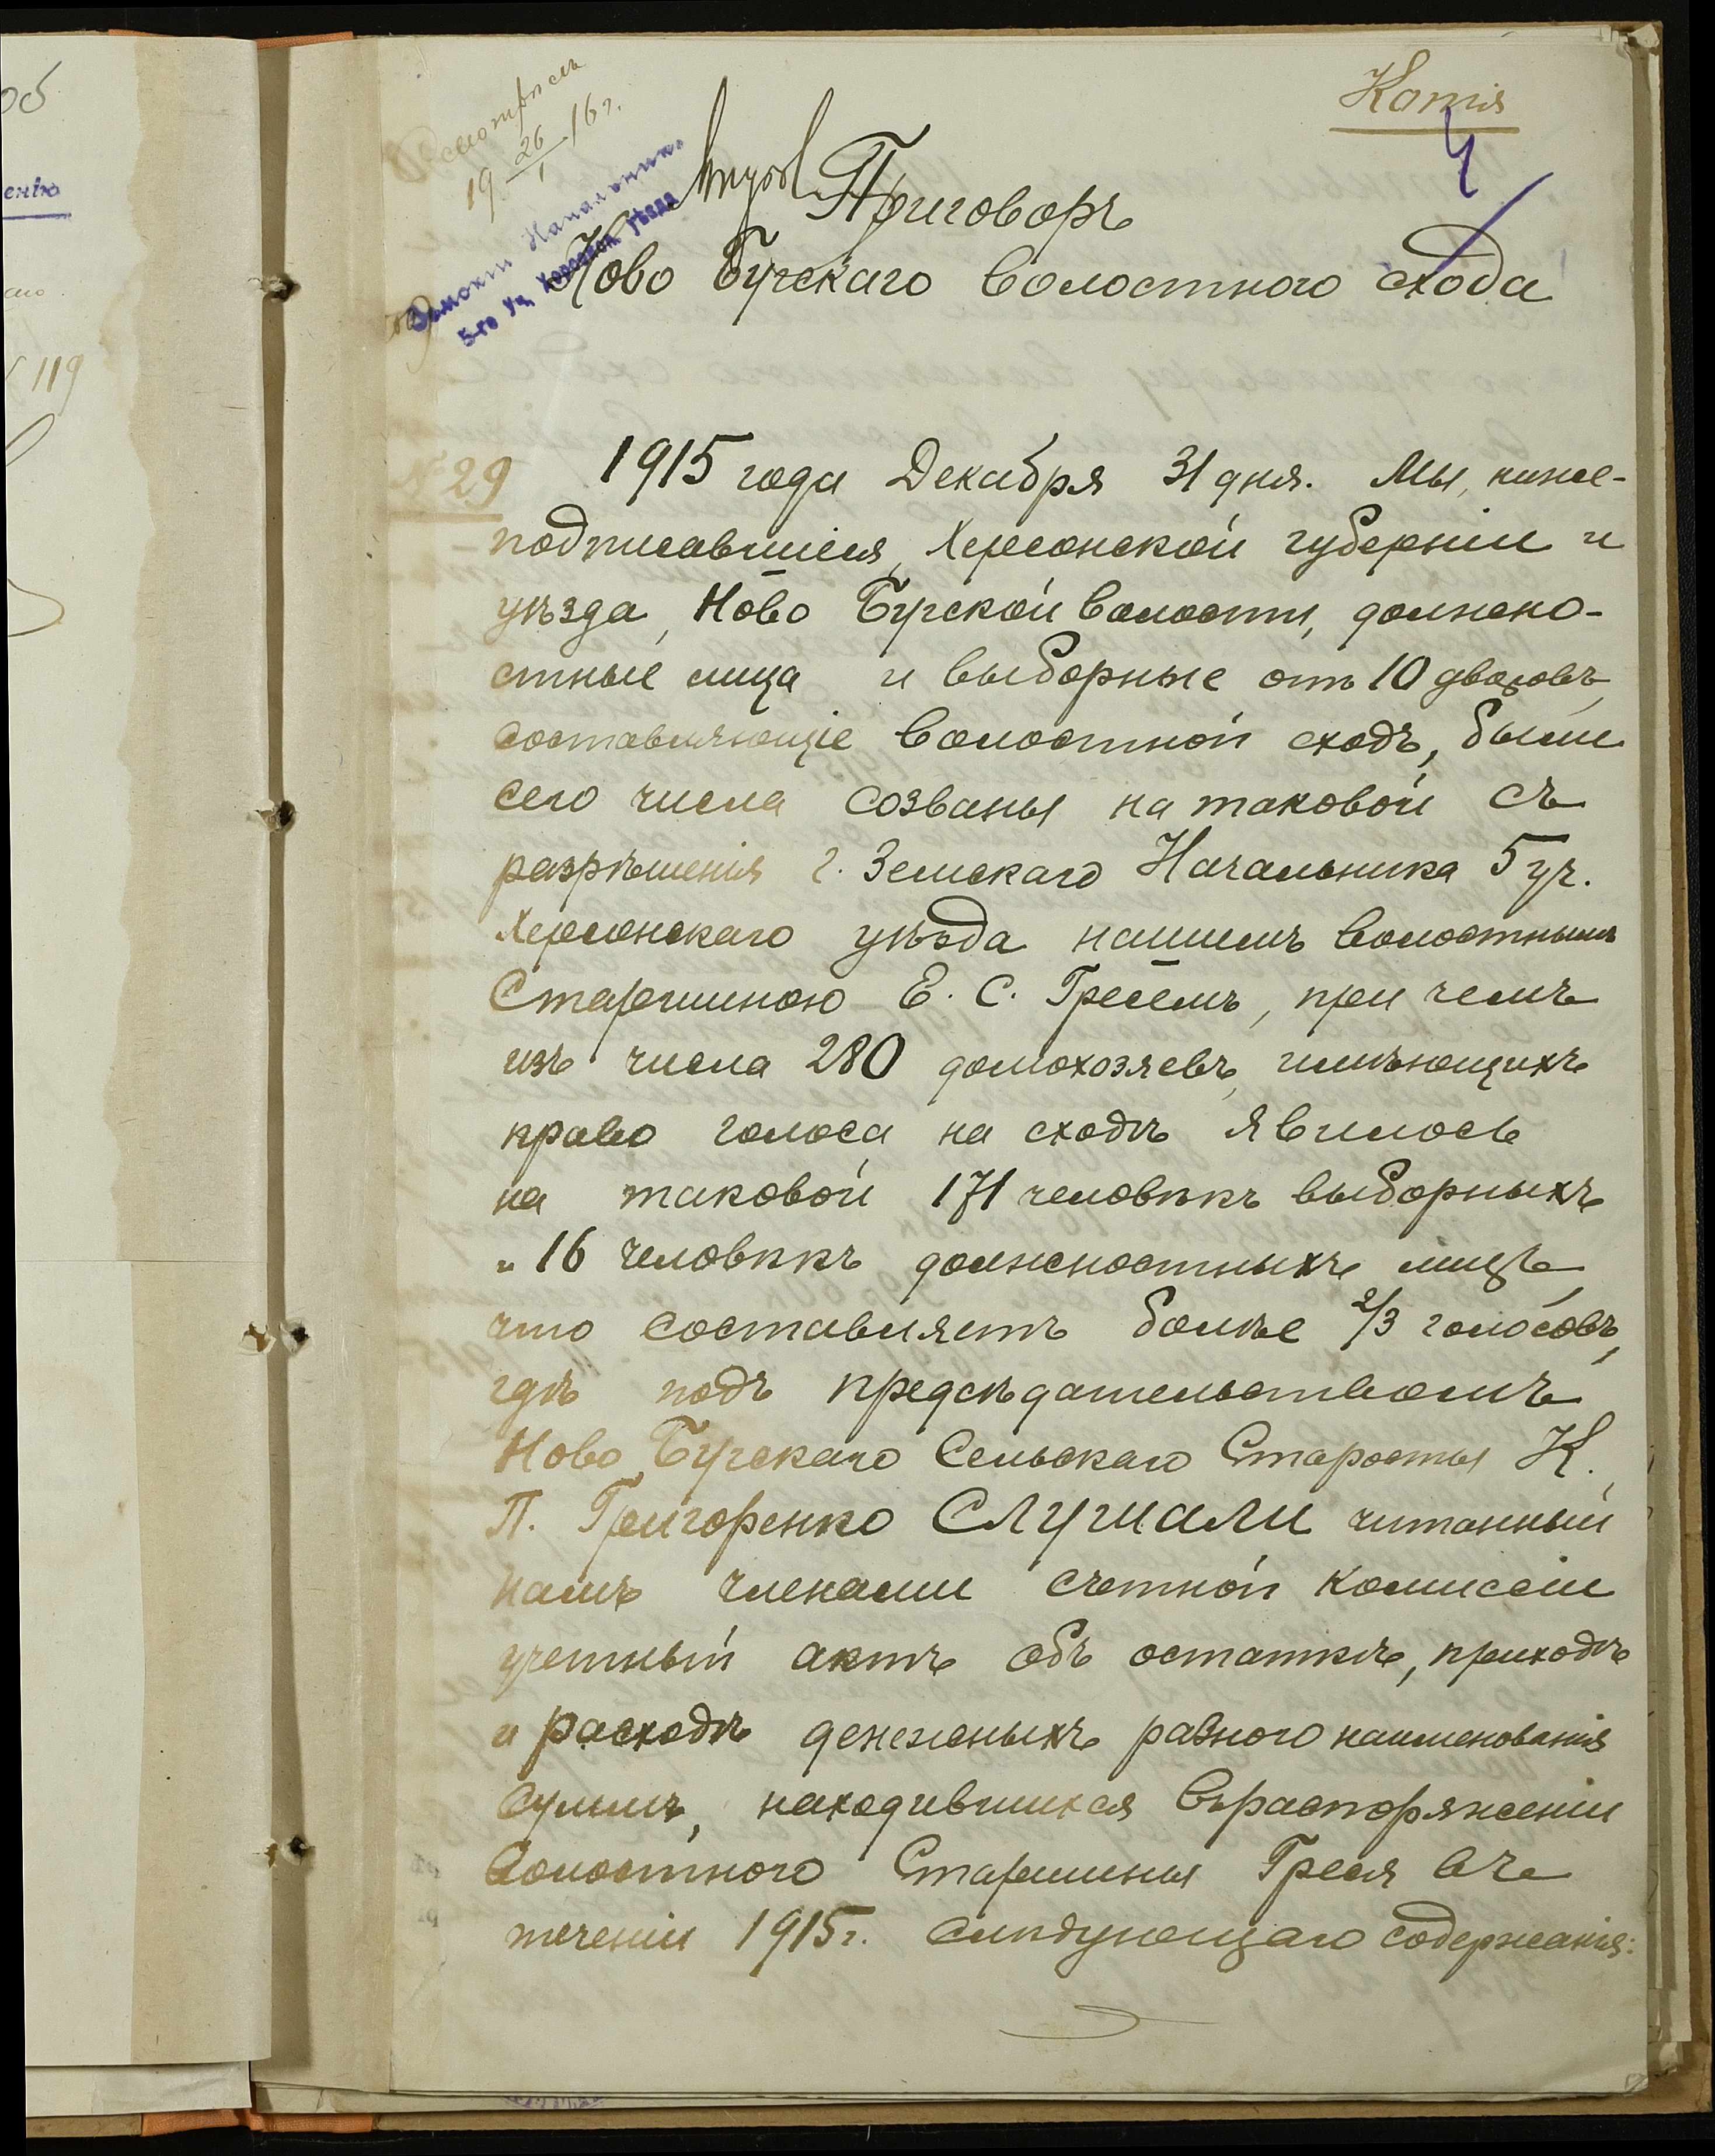 Копія
4
19 26/I 16 г.
Земскій Начальникъ
5-го уч. Херсон. уѣзда
Приговоръ
Ново Бугскаго Волостного схода
№ 29
1915 года Декабря 31 дня. Мы, ниже-
подписавшіеся, Херсонской губерніи и
уѣзда, Ново Бугской волости, должно-
стные лица и выборные отъ 10 дворовъ,
составляющіе волостной сходъ, были
сего числа созваны на таковой съ
разрѣшенія г. Земскаго Начальника 5 уч.
Херсонскаго уѣзда нашимъ Волостнымъ
Старшиною Е. С. Гресемъ, при чемъ
изъ числа 280 домохозяевъ, имѣющихъ
право голоса на сходѣ явилось
на таковой 171 человѣкъ выборныхъ
и 16 человѣкъ должностныхъ лицъ,
что составляетъ болѣе 2/3 голосовъ,
гдѣ подъ предсѣдательствомъ
Ново Бугскаго Сельскаго Старосты К.
П. Григоренко Слушали читанный
намъ членами счетной комиссіи
учетный актъ объ остаткѣ, приходѣ
и расходѣ денежныхъ разного наименованія
суммъ, находившихся въ распоряженіи
Волостного Старшины Греся въ
теченіи 1915 г. слѣдующаго содержанія:
енію
119
об